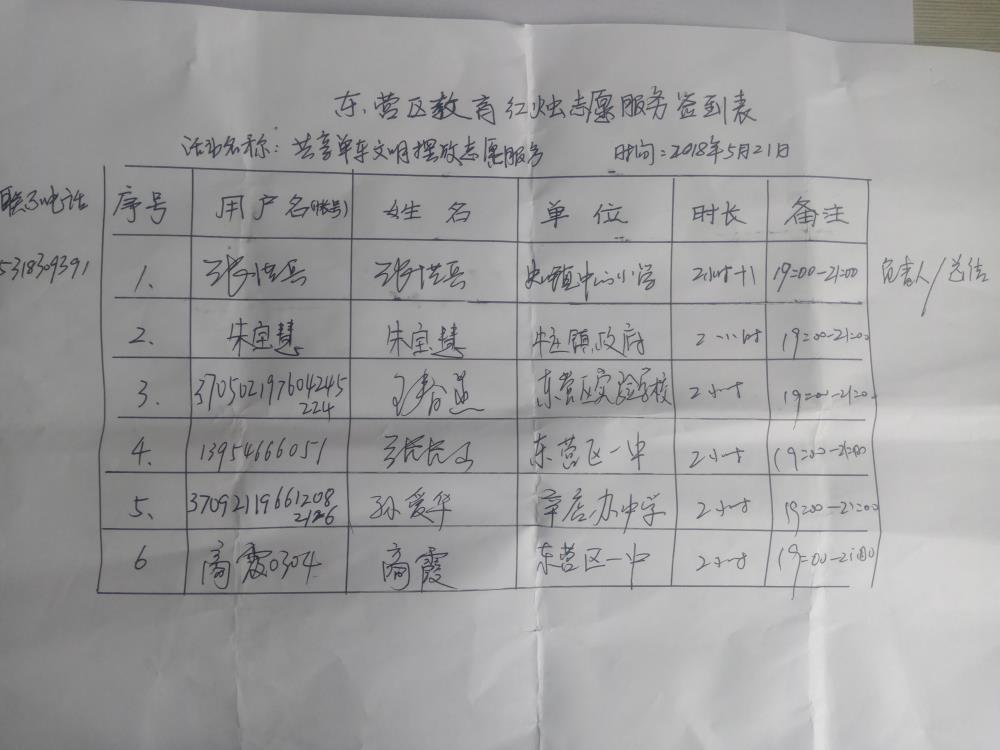 东营区教育红烛志愿服务签到表
活动名称：共享单车文明摆放志愿服务 时间：2018年5月21日
联系电话 序号 用户名(帐号) 姓名 单位 时长 备注
5318309391 1. 张洪兵 张洪兵 史口镇中心小学 2小时+1 19:00-21:00 负责人/总结
2. 朱宝慧 朱宝慧 牛庄镇政府 2小时 19:00-21:00
3. 370502197604245224 王春燕 东营区实验学校 2小时 19:00-21:00
4. 13954666051 东营区一中 2小时 19:00-21:00
5. 370921196612082126 孙爱华 辛店办中学 2小时 19:00-21:00
6 商霞0304 商霞 东营区一中 2小时 19:00-21:00